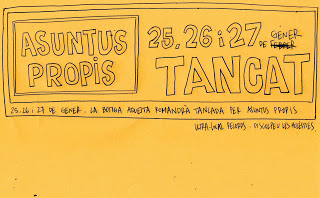 ASUNTUS
PROPIS
25, 26 i 27
DE GENER
TANCAT
25, 26 i 27 DE GENER. LA BOTIGA AQUESTA ROMANDRÀ TANCADA PER ASUNTUS PROPIS
ULTRA-LOCAL RECORDS. DISCULPEU LES MOLÈSTIES.